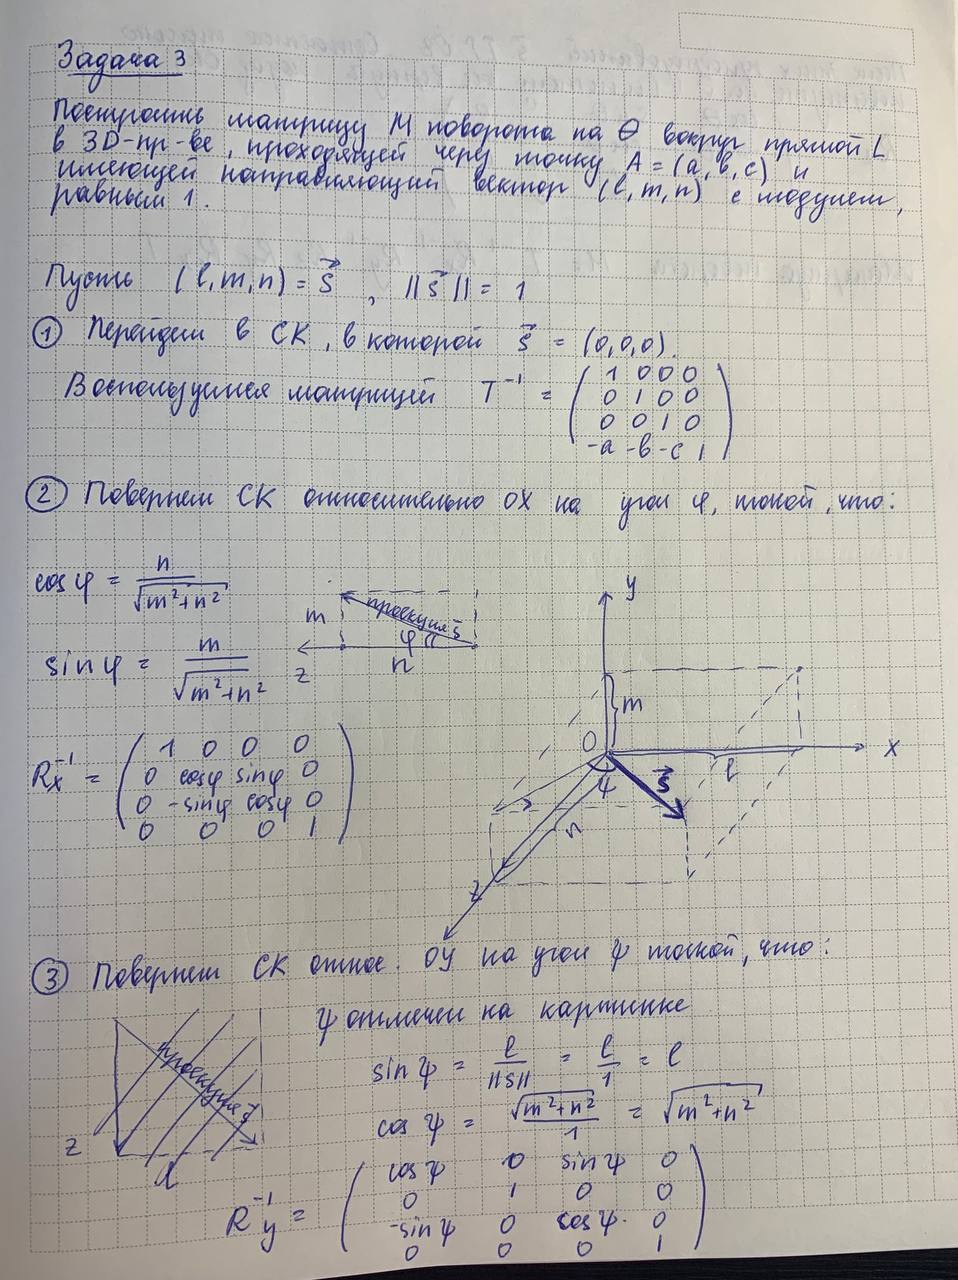 Задача 3
Построить матрицу M поворота на Θ вокруг прямой L
в 3D-пр-ве, проходящей через точку A = (a, b, c) и
имеющей направляющий вектор (l, m, n) с модулем,
равным 1.
Пусть (l, m, n) = s⃗ , ||s⃗|| = 1
① Перейдем в СК, в которой s⃗ = (0,0,0).
Воспользуемся матрицей T⁻¹ = ( 1 0 0 0
0 1 0 0
0 0 1 0
-a -b -c 1 )
② Повернем СК относительно OX на угол φ, такой, что:
cos φ = n / √(m²+n²)
sin φ = m / √(m²+n²)
m
проекция s⃗
φ
z
n
y
m
O
x
l
s⃗
ψ
n
z
Rx⁻¹ = ( 1 0 0 0
0 cosφ sinφ 0
0 -sinφ cosφ 0
0 0 0 1 )
③ Повернем СК относ. OY на угол ψ такой, что:
ψ отмечен на картинке
sin ψ = l / ||s|| = l / 1 = l
cos ψ = √(m²+n²) / 1 = √(m²+n²)
проекция s⃗
z
l
R⁻¹y = ( cos ψ 0 sin ψ 0
0 1 0 0
-sin ψ 0 cos ψ 0
0 0 0 1 )